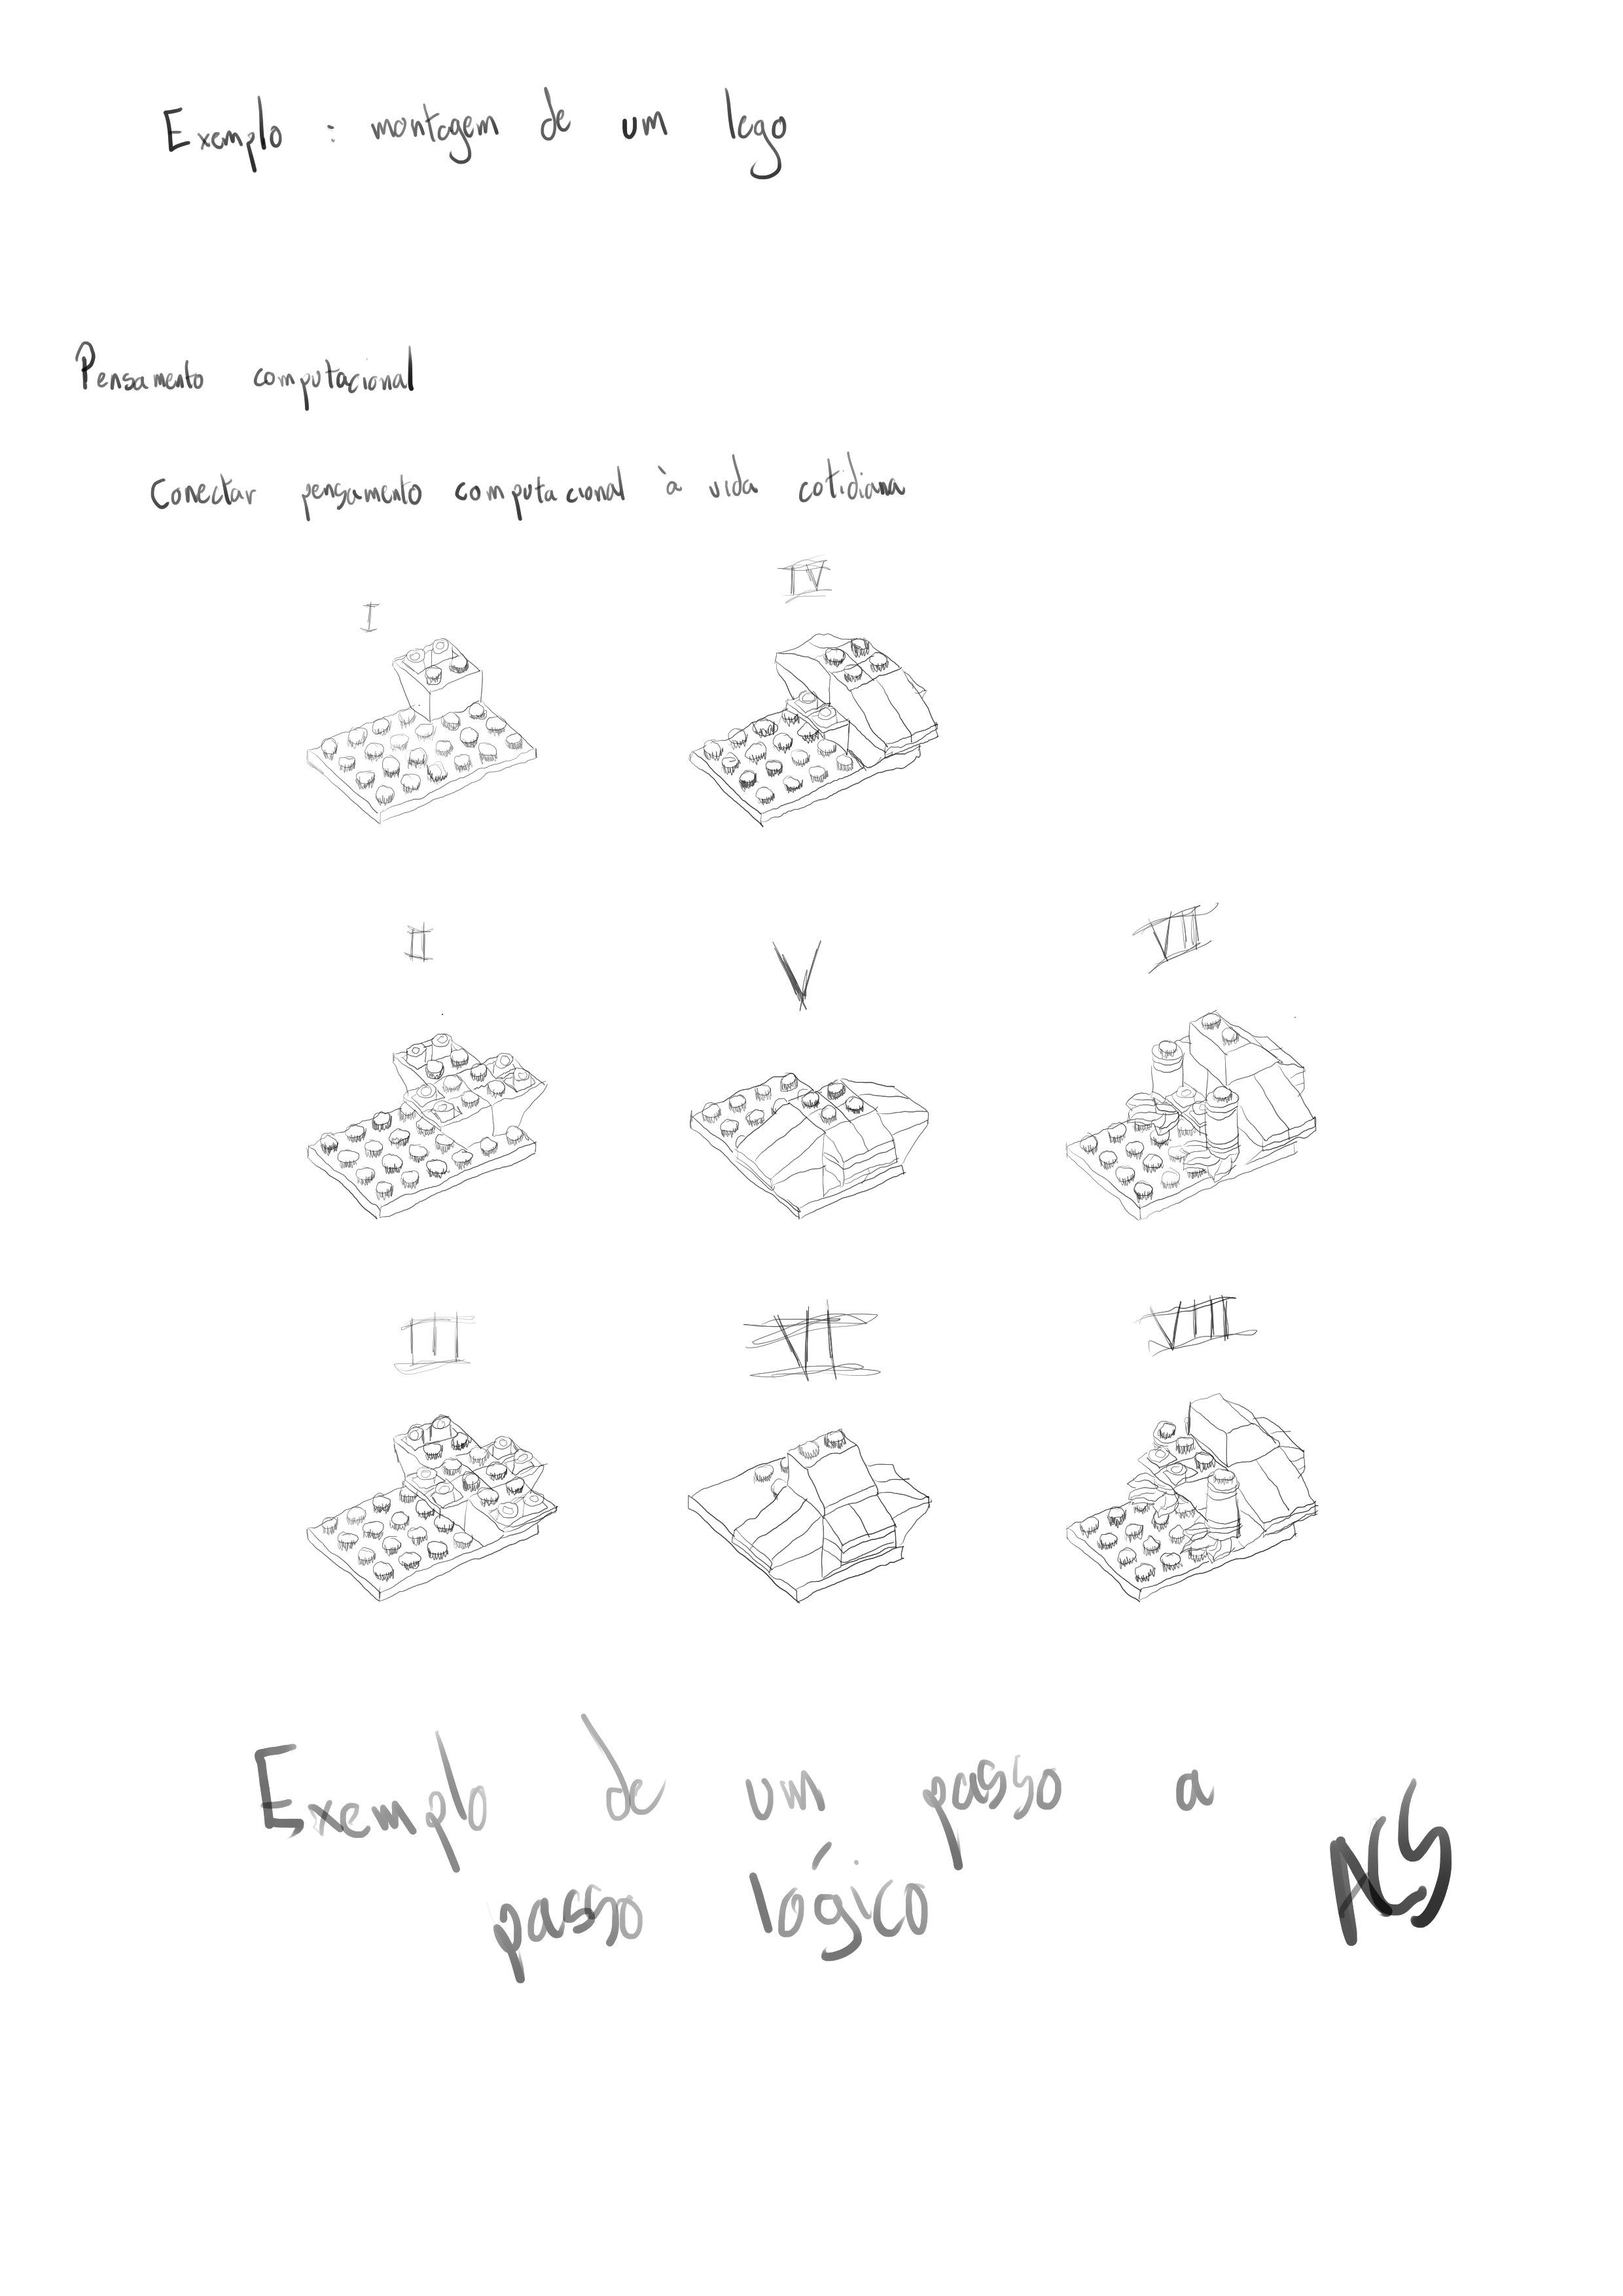 Exemplo : montagem de um lego
Pensamento computacional
Conectar pensamento computacional à vida cotidiana
I
IV
II
V
VII
III
VI
VIII
Exemplo de um passo a
passo lógico
ACS